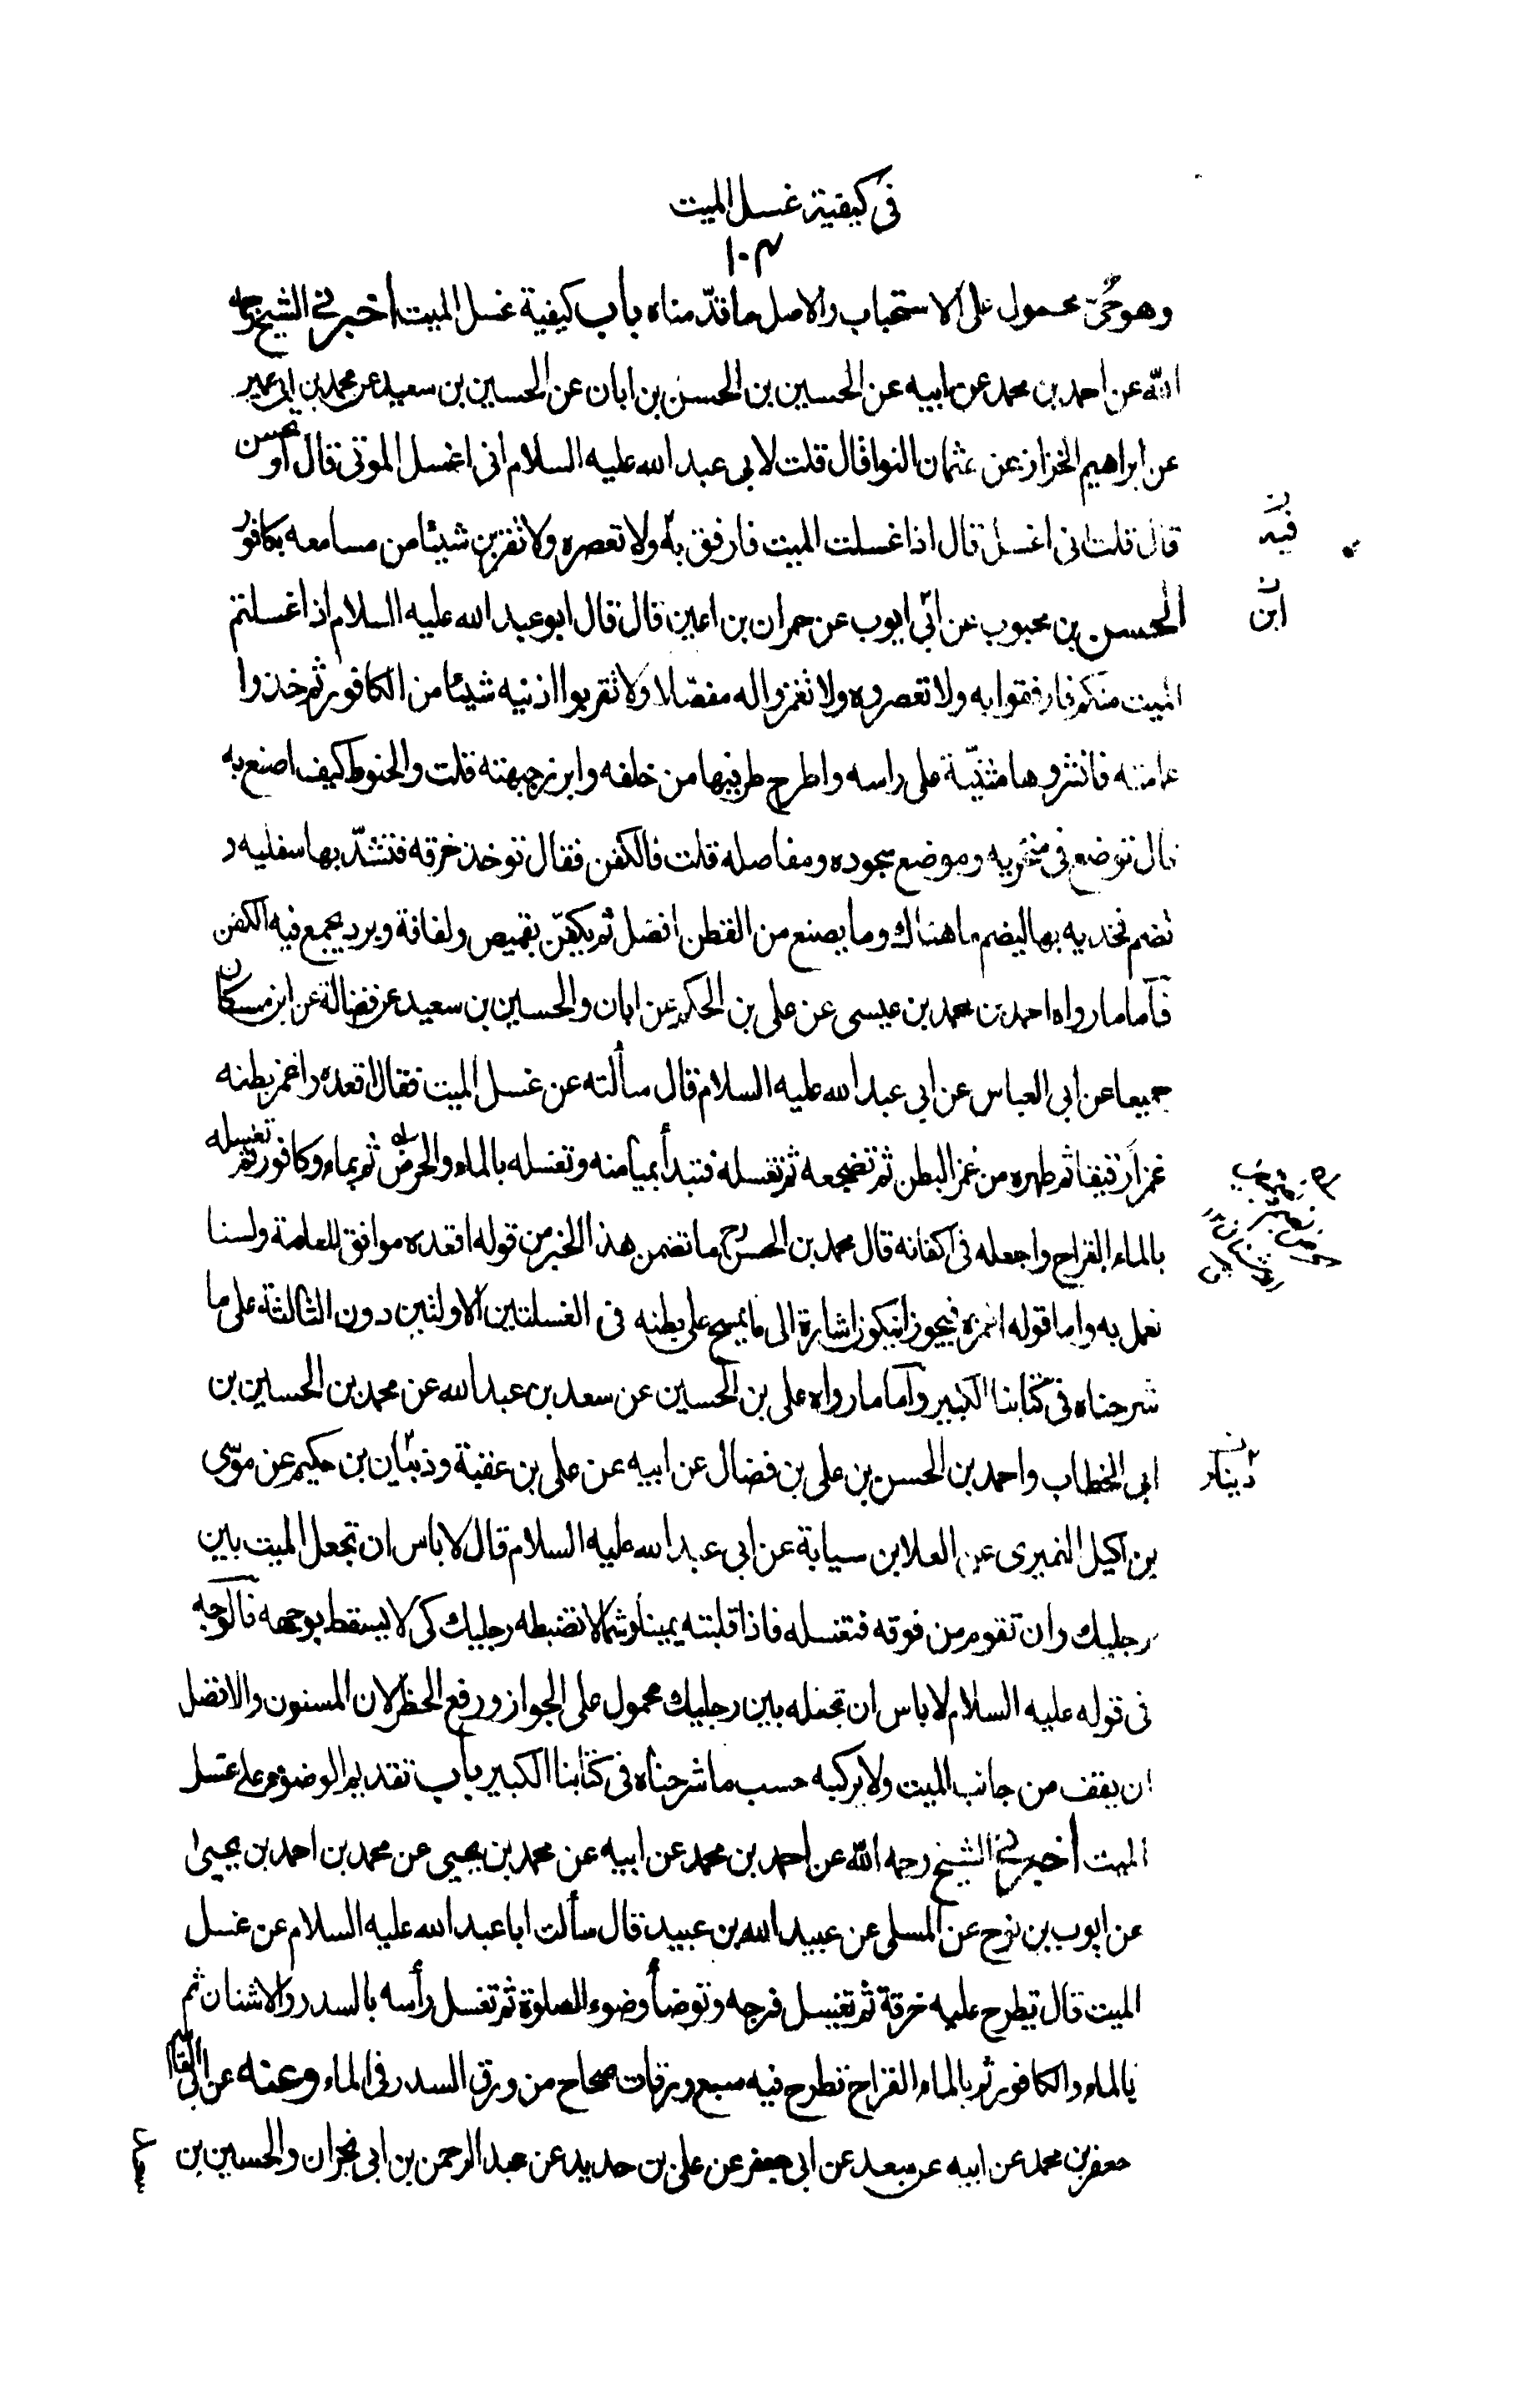 في كيفية غسل الميت
١٠٣
وهو حي محمول على الاستحباب والاصل ما قدّمناه باب كيفية غسل الميت أخبرني الشيخ رحمه
اللّه عن احمد بن محمد عن ابيه عن الحسين بن الحسن بن ابان عن الحسين بن سعيد عن محمد بن ابي عمير
عن ابراهيم الخزاز عن عثمان النوا قال قلت لابي عبد الله عليه السلام اني اغسل الموتى قال أو تحسن
قال قلت اني اغسل قال اذا غسلت الميت فارفق به ولا تعصره ولا تقربن شيئا من مسامعه بكافور
فيه
الحسن بن محبوب عن ابي ايوب عن حمران بن اعين قال قال ابو عبد الله عليه السلام اذا غسلتم
ابن
الميت منكم فارفقوا به ولا تعصروه ولا تغمزوا له مفصلا ولا تقربوا اذنيه شيئا من الكافور ثم خذوا
عمامته فانشروها مثنيّة على راسه واطرح طرفيها من خلفه وابرز جبهته قلت والحنوط كيف اصنع به
قال توضع في منخريه وموضع سجوده ومفاصله قلت فالكفن فقال توخذ خرقه فتشدّ بها سفليه و
تضم فخديه بها ليضم ما هناك وما يصنع من القطن افضل ثم يكفن بقميص ولفافة وبرد يجمع فيه الكفن
فأما ما رواه احمد بن محمد بن عيسى عن على بن الحكم عن ابان والحسين بن سعيد عن فضالة عن ابن مسكان
جميعا عن ابي العباس عن ابي عبد الله عليه السلام قال سألته عن غسل الميت فقال اقعده واغمز بطنه
غمزا رفيقا ثم طهره من غمز البطن ثم تضجعه ثم تغسله فتبدأ بميامنه وتغسله بالماء والحرض ثم بماء وكافور ثم تغسله
بالماء القراح واجعله في اكفانه قال محمد بن الحسن رح ما تضمن هذا الخبر من قوله اقعده موافق للعامة ولسنا
نعمل به واما قوله اغمزه فيجوز ان يكون اشارة الى ما يمسح على بطنه في الغسلتين الاولتين دون الثالثة على ما
شرحناه في كتابنا الكبير وأما ما رواه على بن الحسين عن سعد بن عبد الله عن محمد بن الحسين بن
ابي الخطاب واحمد بن الحسن بن على بن فضال عن ابيه عن على بن عقبة وذبيان بن حكيم عن موسى
دينار
بن اكيل النميرى عن العلا بن سيابة عن ابي عبد الله عليه السلام قال لا باس ان تجعل الميت بين
رجليك وان تقوم من فوقه فتغسله فاذا قلبته يمينا وشمالا تضبطه رجليك كى لا يسقط بوجهه فالوجه
في قوله عليه السلام لا باس ان تجعله بين رجليك محمول على الجواز ورفع الحظر لان المسنون والافضل
ان يقف من جانب الميت ولا يركبه حسب ما شرحناه في كتابنا الكبير باب تقديم الوضوء على غسل
الميت أخبرني الشيخ رحمه اللّه عن احمد بن محمد عن ابيه عن محمد بن يحيى عن محمد بن احمد بن يحيى
عن ايوب بن نوح عن المسلى عن عبيد الله بن عبيد قال سألت ابا عبد الله عليه السلام عن غسل
الميت قال تطرح عليه خرقة ثم تغسل فرجه وتوضأ وضوء الصلوة ثم تغسل رأسه بالسدر والاشنان ثم
بالماء والكافور ثم بالماء القراح تطرح فيه سبع ورقات صحاح من ورق السدر في الماء وعنه عن ابي القاسم
جعفر بن محمد عن ابيه عن سعد عن ابي جعفر عن على بن حديد عن عبد الرحمن بن ابي نجران والحسين بن